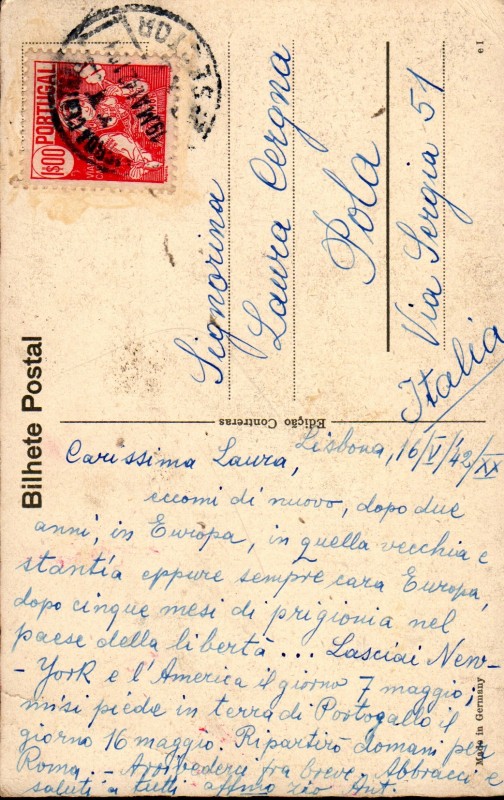 PORTUGAL
1$00
Bilhete Postal
Signorina
Laura Cergna
Pola
Via Sergia 51
Italia
Edição Contreras
e I
Lisbona, 16/V/42/XX
Carissima Laura,
eccomi di nuovo, dopo due
anni, in Europa, in quella vecchia e
stantía eppure sempre cara Europa,
dopo cinque mesi di prigionia nel
paese della libertà... Lasciai New-
-York e l'America il giorno 7 maggio;
misi piede in terra di Portogallo il
giorno 16 maggio. Ripartirò domani per
Roma.- Arrivederci fra breve. Abbracci e
saluti a tutti affmo zio Ant.
Made in Germany